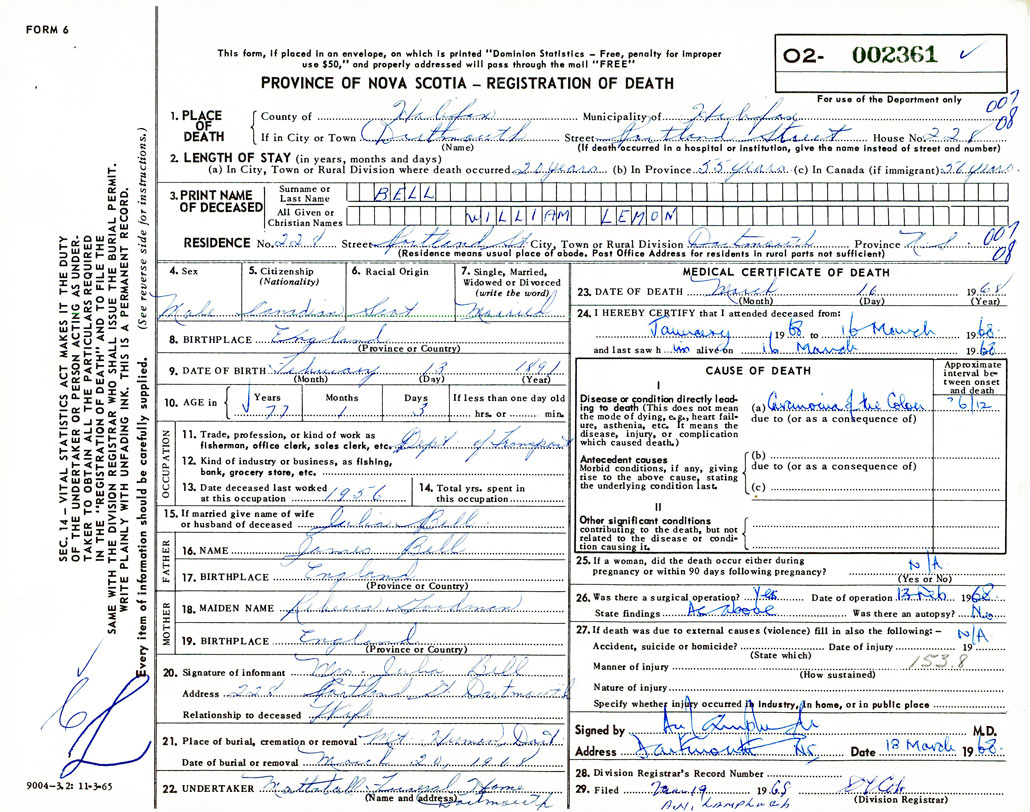 FORM 6
This form, if placed in an envelope, on which is printed "Dominion Statistics – Free, penalty for improper
use $50," and properly addressed will pass through the mail "FREE"
PROVINCE OF NOVA SCOTIA – REGISTRATION OF DEATH
O2- 002361 ✓
For use of the Department only
007
08
1. PLACE OF DEATH
County of Halifax Municipality of Halifax
If in City or Town Dartmouth Street Portland Street House No. 228
(Name) (If death occurred in a hospital or institution, give the name instead of street and number)
2. LENGTH OF STAY (in years, months and days)
(a) In City, Town or Rural Division where death occurred 20 years (b) In Province 55 years (c) In Canada (if immigrant) 56 years
3. PRINT NAME OF DECEASED
Surname or Last Name BELL
All Given or Christian Names WILLIAM LEMON
RESIDENCE No. 228 Street Portland St City, Town or Rural Division Dartmouth Province N S
007
08
(Residence means usual place of abode. Post Office Address for residents in rural parts not sufficient)
4. Sex
Male
5. Citizenship
(Nationality)
Canadian
6. Racial Origin
Scot
7. Single, Married,
Widowed or Divorced
(write the word)
Married
8. BIRTHPLACE England
(Province or Country)
9. DATE OF BIRTH February 13 1891
(Month) (Day) (Year)
10. AGE in
Years Months Days If less than one day old
77 1 3 hrs. or min.
OCCUPATION
11. Trade, profession, or kind of work as
fisherman, office clerk, sales clerk, etc. Dept of Transport
12. Kind of industry or business, as fishing,
bank, grocery store, etc.
13. Date deceased last worked
at this occupation 1956
14. Total yrs. spent in
this occupation
15. If married give name of wife
or husband of deceased Julia Bell
FATHER
16. NAME James Bell
17. BIRTHPLACE England
(Province or Country)
MOTHER
18. MAIDEN NAME Rebecca Goodman
19. BIRTHPLACE England
(Province or Country)
20. Signature of informant Mrs Julia Bell
Address 228 Portland St Dartmouth
Relationship to deceased Wife
21. Place of burial, cremation or removal Mt. Hermon Dart
Date of burial or removal March 20, 1968
22. UNDERTAKER Mattatall Funeral Home
(Name and address) Dartmouth
MEDICAL CERTIFICATE OF DEATH
23. DATE OF DEATH March 16 1968
(Month) (Day) (Year)
24. I HEREBY CERTIFY that I attended deceased from:
January 1968 to 16 March 1968
and last saw him alive on 16 March 1968
CAUSE OF DEATH
Approximate
interval be-
tween onset
and death
I
Disease or condition directly lead-
ing to death (This does not mean
the mode of dying, e.g., heart fail-
ure, asthenia, etc. It means the
disease, injury, or complication
which caused death.)
(a) Carcinoma of the Colon ? 6/12
due to (or as a consequence of)
Antecedent causes
Morbid conditions, if any, giving
rise to the above cause, stating
the underlying condition last.
(b)
due to (or as a consequence of)
(c)
II
Other significant conditions
contributing to the death, but not
related to the disease or condi-
tion causing it.
25. If a woman, did the death occur either during
pregnancy or within 90 days following pregnancy? N/A
(Yes or No)
26. Was there a surgical operation? Yes Date of operation 13 Feb 1968
State findings As above Was there an autopsy? No
27. If death was due to external causes (violence) fill in also the following: – N/A
Accident, suicide or homicide? Date of injury 19
(State which)
153.8
Manner of injury
(How sustained)
Nature of injury
Specify whether injury occurred in Industry, in home, or in public place
Signed by M.D.
Address Dartmouth NS Date 18 March 1968
28. Division Registrar's Record Number
29. Filed Mar 19 1968
(Division Registrar)
SEC. 14 – VITAL STATISTICS ACT MAKES IT THE DUTY
OF THE UNDERTAKER OR PERSON ACTING AS UNDER-
TAKER TO OBTAIN ALL THE PARTICULARS REQUIRED
IN THE "REGISTRATION OF DEATH" AND TO FILE THE
SAME WITH THE DIVISION REGISTRAR WHO SHALL ISSUE THE BURIAL PERMIT.
WRITE PLAINLY WITH UNFADING INK. THIS IS A PERMANENT RECORD.
Every item of information should be carefully supplied. (See reverse side for instructions.)
9004-3.2: 11-3-65